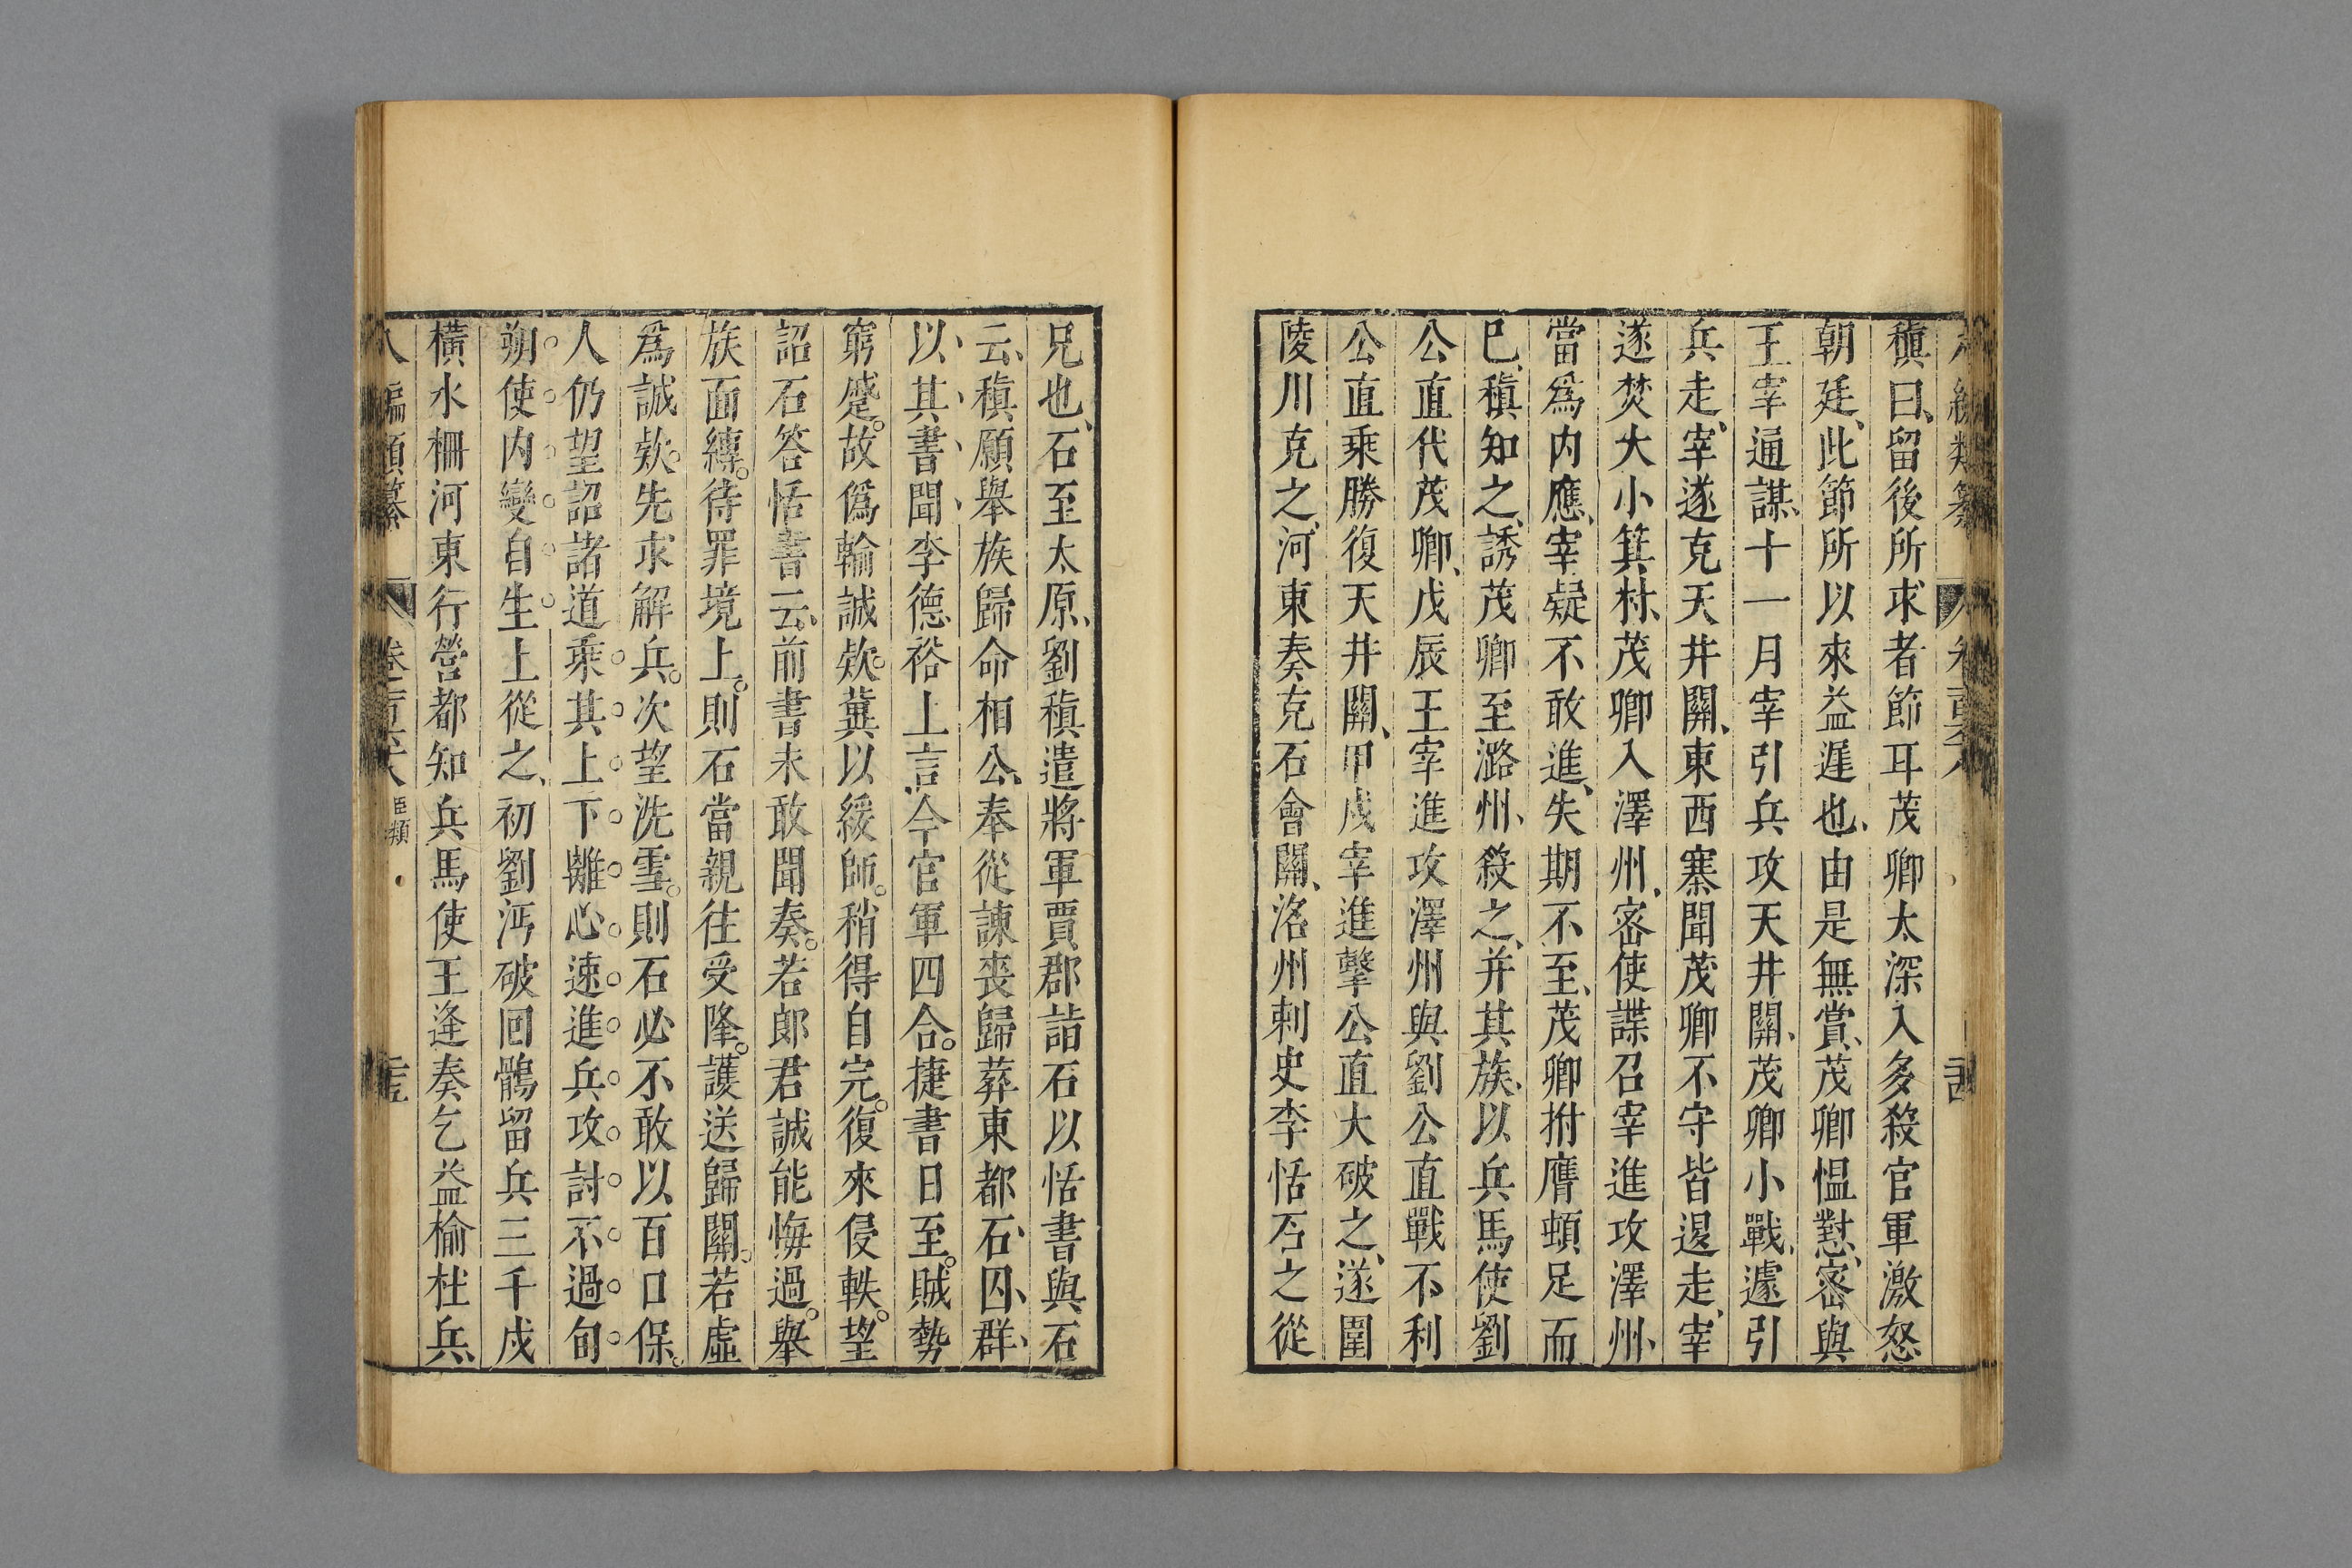 稹曰留後所求者節耳茂卿太深入多殺官軍激怒
朝廷此節所以來益遲也由是無賞茂卿愠懟密與
王宰通謀十一月宰引兵攻天井關茂卿小戰遽引
兵走宰遂克天井關東西寨聞茂卿不守皆退走宰
遂焚大小箕村茂卿入澤州密使諜召宰進攻澤州
當爲内應宰疑不敢進失期不至茂卿拊膺頓足而
已稹知之誘茂卿至潞州殺之并其族以兵馬使劉
公直代茂卿戊辰王宰進攻澤州與劉公直戰不利
公直乘勝復天井關甲戌宰進擊公直大破之遂圍
陵川克之河東奏克石會關洺州刺史李恬石之從
兄也石至太原劉稹遣將軍賈郡詣石以恬書與石
云稹願舉族歸命相公奉從諫喪歸葬東都石囚群
以其書聞李德裕上言今官軍四合捷書日至賊勢
窮蹙故僞輸誠欵冀以緩師稍得自完復來侵軼望
詔石答恬書云前書未敢聞奏若郎君誠能悔過舉
族面縛待罪境上則石當親往受降護送歸關若虛
爲誠欵先求解兵次望洗雪則石必不敢以百口保
人仍望詔諸道乘其上下離心速進兵攻討不過旬
朔使内變自生上從之初劉沔破回鶻留兵三千戍
橫水柵河東行營都知兵馬使王逢奏乞益榆社兵
八編類纂 卷 臣類